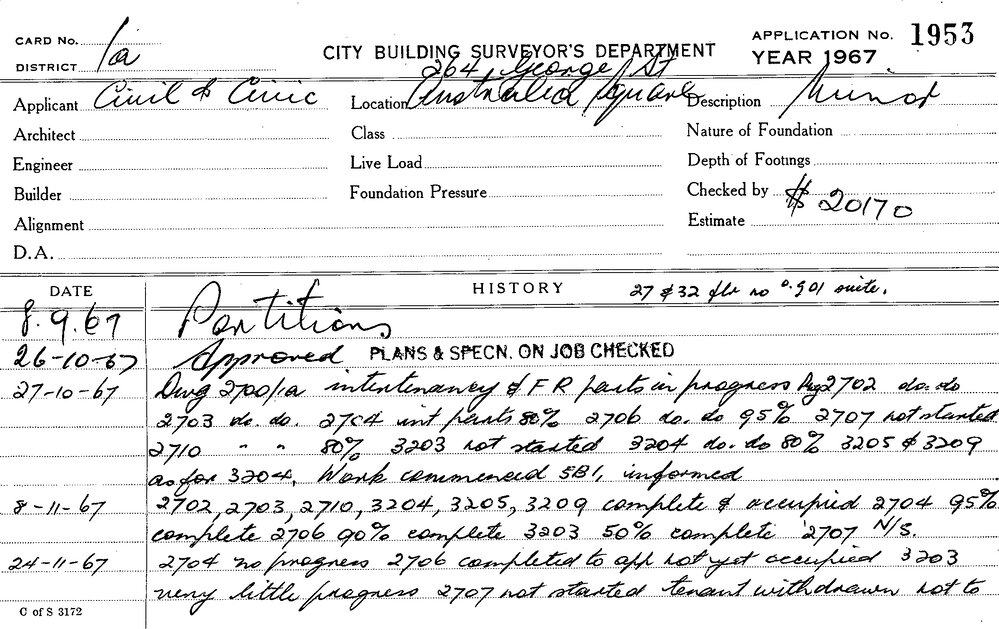 CARD No. 1a
DISTRICT
CITY BUILDING SURVEYOR'S DEPARTMENT
APPLICATION No. 1953
YEAR 1967
264 George St
Applicant Civil & Civic Location Australia Square Description Minor
Architect Class Nature of Foundation
Engineer Live Load Depth of Footings
Builder Foundation Pressure Checked by
Alignment Estimate $20170
D.A.
DATE HISTORY 27 & 32 flr no 0.901 suite.
8.9.67 Partitions
26-10-67 Approved PLANS & SPECN. ON JOB CHECKED
27-10-67 Dwg 2700/1a intertenancy & F R parts in progress 2702 do. do
2703 do. do. 2704 int parts 80% 2706 do. do 95% 2707 not started
2710 " " 80% 3203 not started 3204 do. do 80% 3205 & 3209
as for 3204. Work commenced SB1, informed
8-11-67 2702, 2703, 2710, 3204, 3205, 3209 complete & occupied 2704 95%
complete 2706 90% complete 3203 50% complete 2707 N/S.
24-11-67 2704 no progress 2706 completed to app not yet occupied 3203
very little progress 2707 not started tenant withdrawn not to
C of S 3172